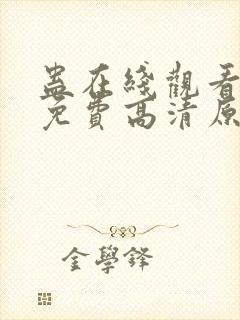 蛊在綫觀看
免費高清原
金學鋒